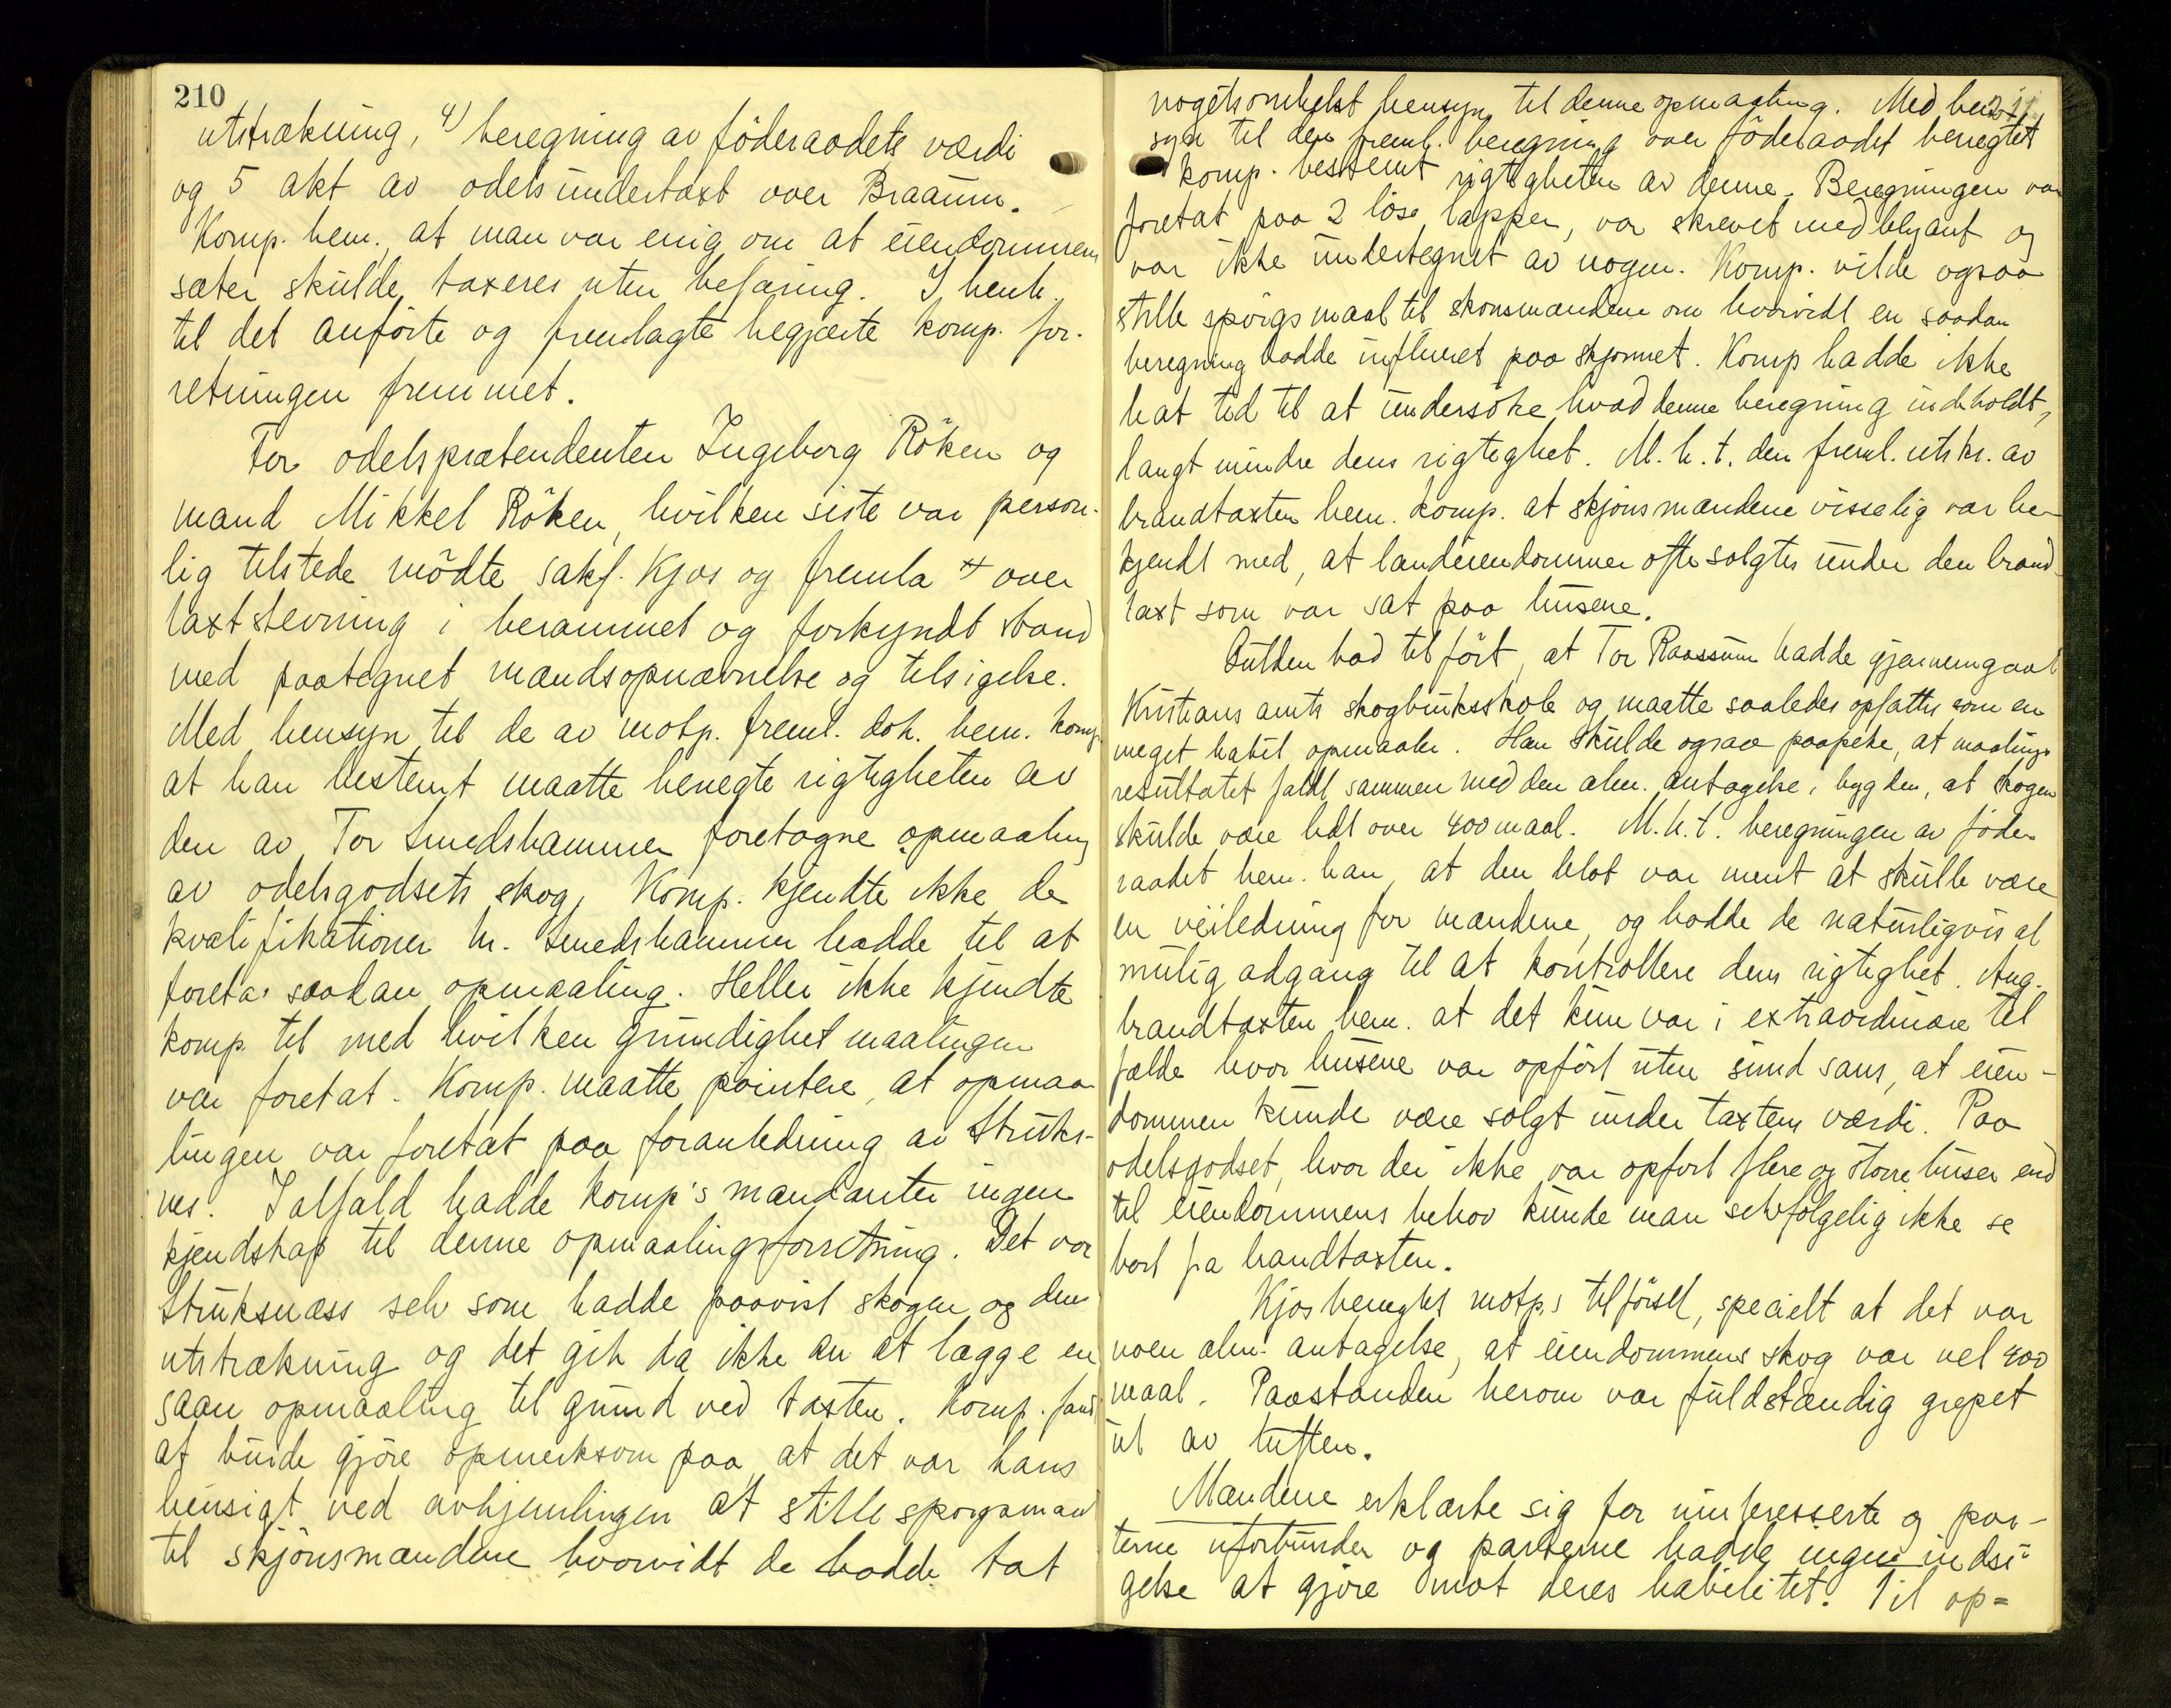 210
utstrækning, 4) beregning av föderaadets værdi
og 5 akt av odelsundertaxt over Braaum.
Komp. bem., at man var enig om at eiendommens
sæter skulde taxeres uten befaring. I henh.
til det anförte og fremlagte begjærte komp. for-
retningen fremmet.
For odelsprætendenten Ingeborg Röken og
mand Mikkel Röken, hvilken siste var person-
lig tilstede mödte sakf. Kjos og fremla over
taxtstevning i berammet og forkyndt stand
med paategnet mandsopnævnelse og tilsigelse.
Med hensyn til de av motp. freml. dok. bem. komp.
at han bestemt maatte benegte rigtigheten av
den av Tor Smedshammer foretagne opmaaling
av odelsgodsets skog. Komp. kjendte ikke de
kvalifikationer hr. Smedshammer hadde til at
foreta saadan opmaaling. Heller ikke kjendte
komp. til med hvilken grundighet maalingen
var foretat. Komp. maatte pointere, at opmaa-
lingen var foretat paa foranledning av Struks-
nes. Ialfald hadde komp's mandanter ingen
kjendskap til denne opmaalingsforretning. Det var
Struksnæss selv som hadde paavist skogen og dens
utstrækning og det gik da ikke an at lægge en
saan opmaaling til grund ved taxten. Komp. fandt
at burde gjöre opmerksom paa, at det var hans
hensigt ved avhjemlingen at stille spörgsmaal
til skjönsmændene hvorvidt de hadde tat
211
nogetsomhelst hensyn til denne opmaaling. Med hen-
syn til den freml. beregning over föderaadet benegtet
komp. bestemt rigtigheten av denne. Beregningen var
foretat paa 2 löse lapper, var skrevet med blyant og
var ikke undertegnet av nogen. Komp. vilde ogsaa
stille spörgsmaal til skönsmændene om hvorvidt en saadan
beregning hadde influeret paa skjönnet. Komp hadde ikke
hat tid til at undersöke hvad denne beregning indeholdt,
langt mindre dens rigtighet. M.h.t. den freml. utskr. av
brandtaxten bem. komp. at skjönsmændene visselig var be-
kjendt med, at landeiendommer ofte solgtes under den brand-
taxt som var sat paa husene.
Gulden bad tilfört, at Tor Raassum hadde gjennemgaat
Kristians amts skogbruksskole og maatte saaledes opfattes som en
meget habil opmaaler. Han skulde ogsaa paapeke, at maalings-
resultatet faldt sammen med den alm. antagelse i bygden, at skogen
skulde være lidt over 400 maal. M.h.t. beregningen av föde-
raadet bem. han, at den blot var ment at skulle være
en veiledning for mændene, og hadde de naturligvis al
mulig adgang til at kontrollere dens rigtighet. Ang.
brandtaxten bem. at det kun var i extraordinære til-
fælde hvor husene var opfört uten sund sans, at eien-
dommen kunde være solgt under taxtens værdi. Paa
odelsgodset, hvor der ikke var opfört flere og större huser end
til eiendommens behov kunde man selvfölgelig ikke se
bort fra brandtaxten.
Kjos benegtet motp.s tilförsel, specielt at det var
noen alm. antagelse, at eiendommens skog var vel 400
maal. Paastanden herom var fuldstændig grepet
ut av luften.
Mændene erklærte sig for uinteresserte og par-
terne uforbundne og parterne hadde ingen indsi-
gelse at gjöre mot deres habilitet. Til op=